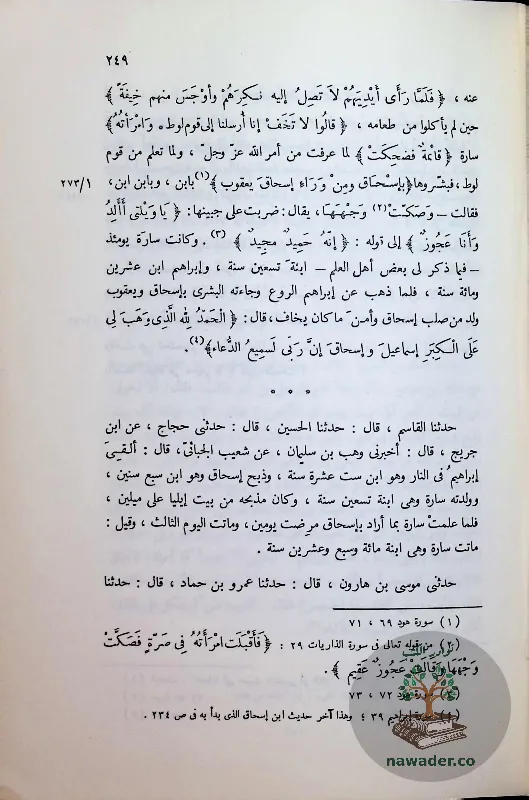 ٢٤٩
عنه ، ﴿ فَلَمَّا رَأَى أَيْدِيَهُمْ لاَ تَصِلُ إليه نكِرَهُمْ وأوْجَسَ منهم خِيفَةً ﴾
حين لم يأكلوا من طعامه ، ﴿ قالُوا لا تَخَفْ إنا أرسلنا إلى قوم لوط ٥ وَامْرأتُهُ ﴾
سارة ﴿ قائِمةٌ فضحِكَتْ ﴾ لما عرفت من أمر الله عزّ وجلّ ، ولما تعلم من قوم
لوط ، فبشّروها ﴿ بإسْحَاق ومِنْ وَرَاءِ إسحاقَ يعقوب ﴾(١) بابن ، وبابن ابن ،
٢٧٣/١
فقالت – وَصَكّتْ(٢) وَجْهَهَا ، يقال : ضربت على جبينها : ﴿ يَا وَيْلتى أَأَلِدُ
وَأنَا عَجُوزٌ ﴾ إلى قوله : ﴿ إنّهُ حَمِيدٌ مجيدٌ ﴾ (٣) . وكانت سارة يومئذ
– فيما ذكر لى بعض أهل العلم – ابنة تسعين سنة ، وإبراهيم ابن عشرين
ومائة سنة ، فلما ذهب عن إبراهيم الروع وجاءته البشرى بإسحاق ويعقوب
ولد من صلب إسحاق وأمنَ ما كان يخاف ، قال : ﴿ الْحَمْدُ لله الَّذِى وَهَبَ لِى
عَلَى الْكِبَرِ إسماعيل وَ إسحاق إنَّ رَبِّى لَسَمِيعُ الدُّعاء ﴾(٤) .
* * *
حدثنا القاسم ، قال : حدثنا الحسين ، قال : حدثنى حجاج ، عن ابن
جريج ، قال : أخبرنى وهب بن سليمان ، عن شعيب الجبائىّ ، قال : ألقىَ
إبراهيم فى النار وهو ابن ست عشرة سنة ، وذبح إسحاق وهو ابن سبع سنين ،
وولدته سارة وهى ابنة تسعين سنة ، وكان مذبحه من بيت إيليا على ميلين ،
فلما علمتْ سارة بما أراد بإسحاق مرضت يومين ، وماتت اليوم الثالث ، وقيل :
ماتت سارة وهى ابنة مائة وسبع وعشرين سنة .
حدثنى موسى بن هارون ، قال : حدثنا عمرو بن حماد ، قال : حدثنا
(١) سورة هود ٦٩ ، ٧١
(٢) من قوله تعالى فى سورة الذاريات ٢٩ : ﴿ فَأَقْبَلَتِ امْرَأَتُهُ فى صَرَّةٍ فَصَكَّتْ
وَجْهَهَا وَقَالَتْ عَجُوزٌ عَقِيم ﴾ .
(٣) سورة هود ٧٢ ، ٧٣
(٤) سورة إبراهيم ٣٩ ؛ وهذا آخر حديث ابن إسحاق الذى بدأ به فى ص ٢٣٤ .
نوادر الكتب
nawader.co